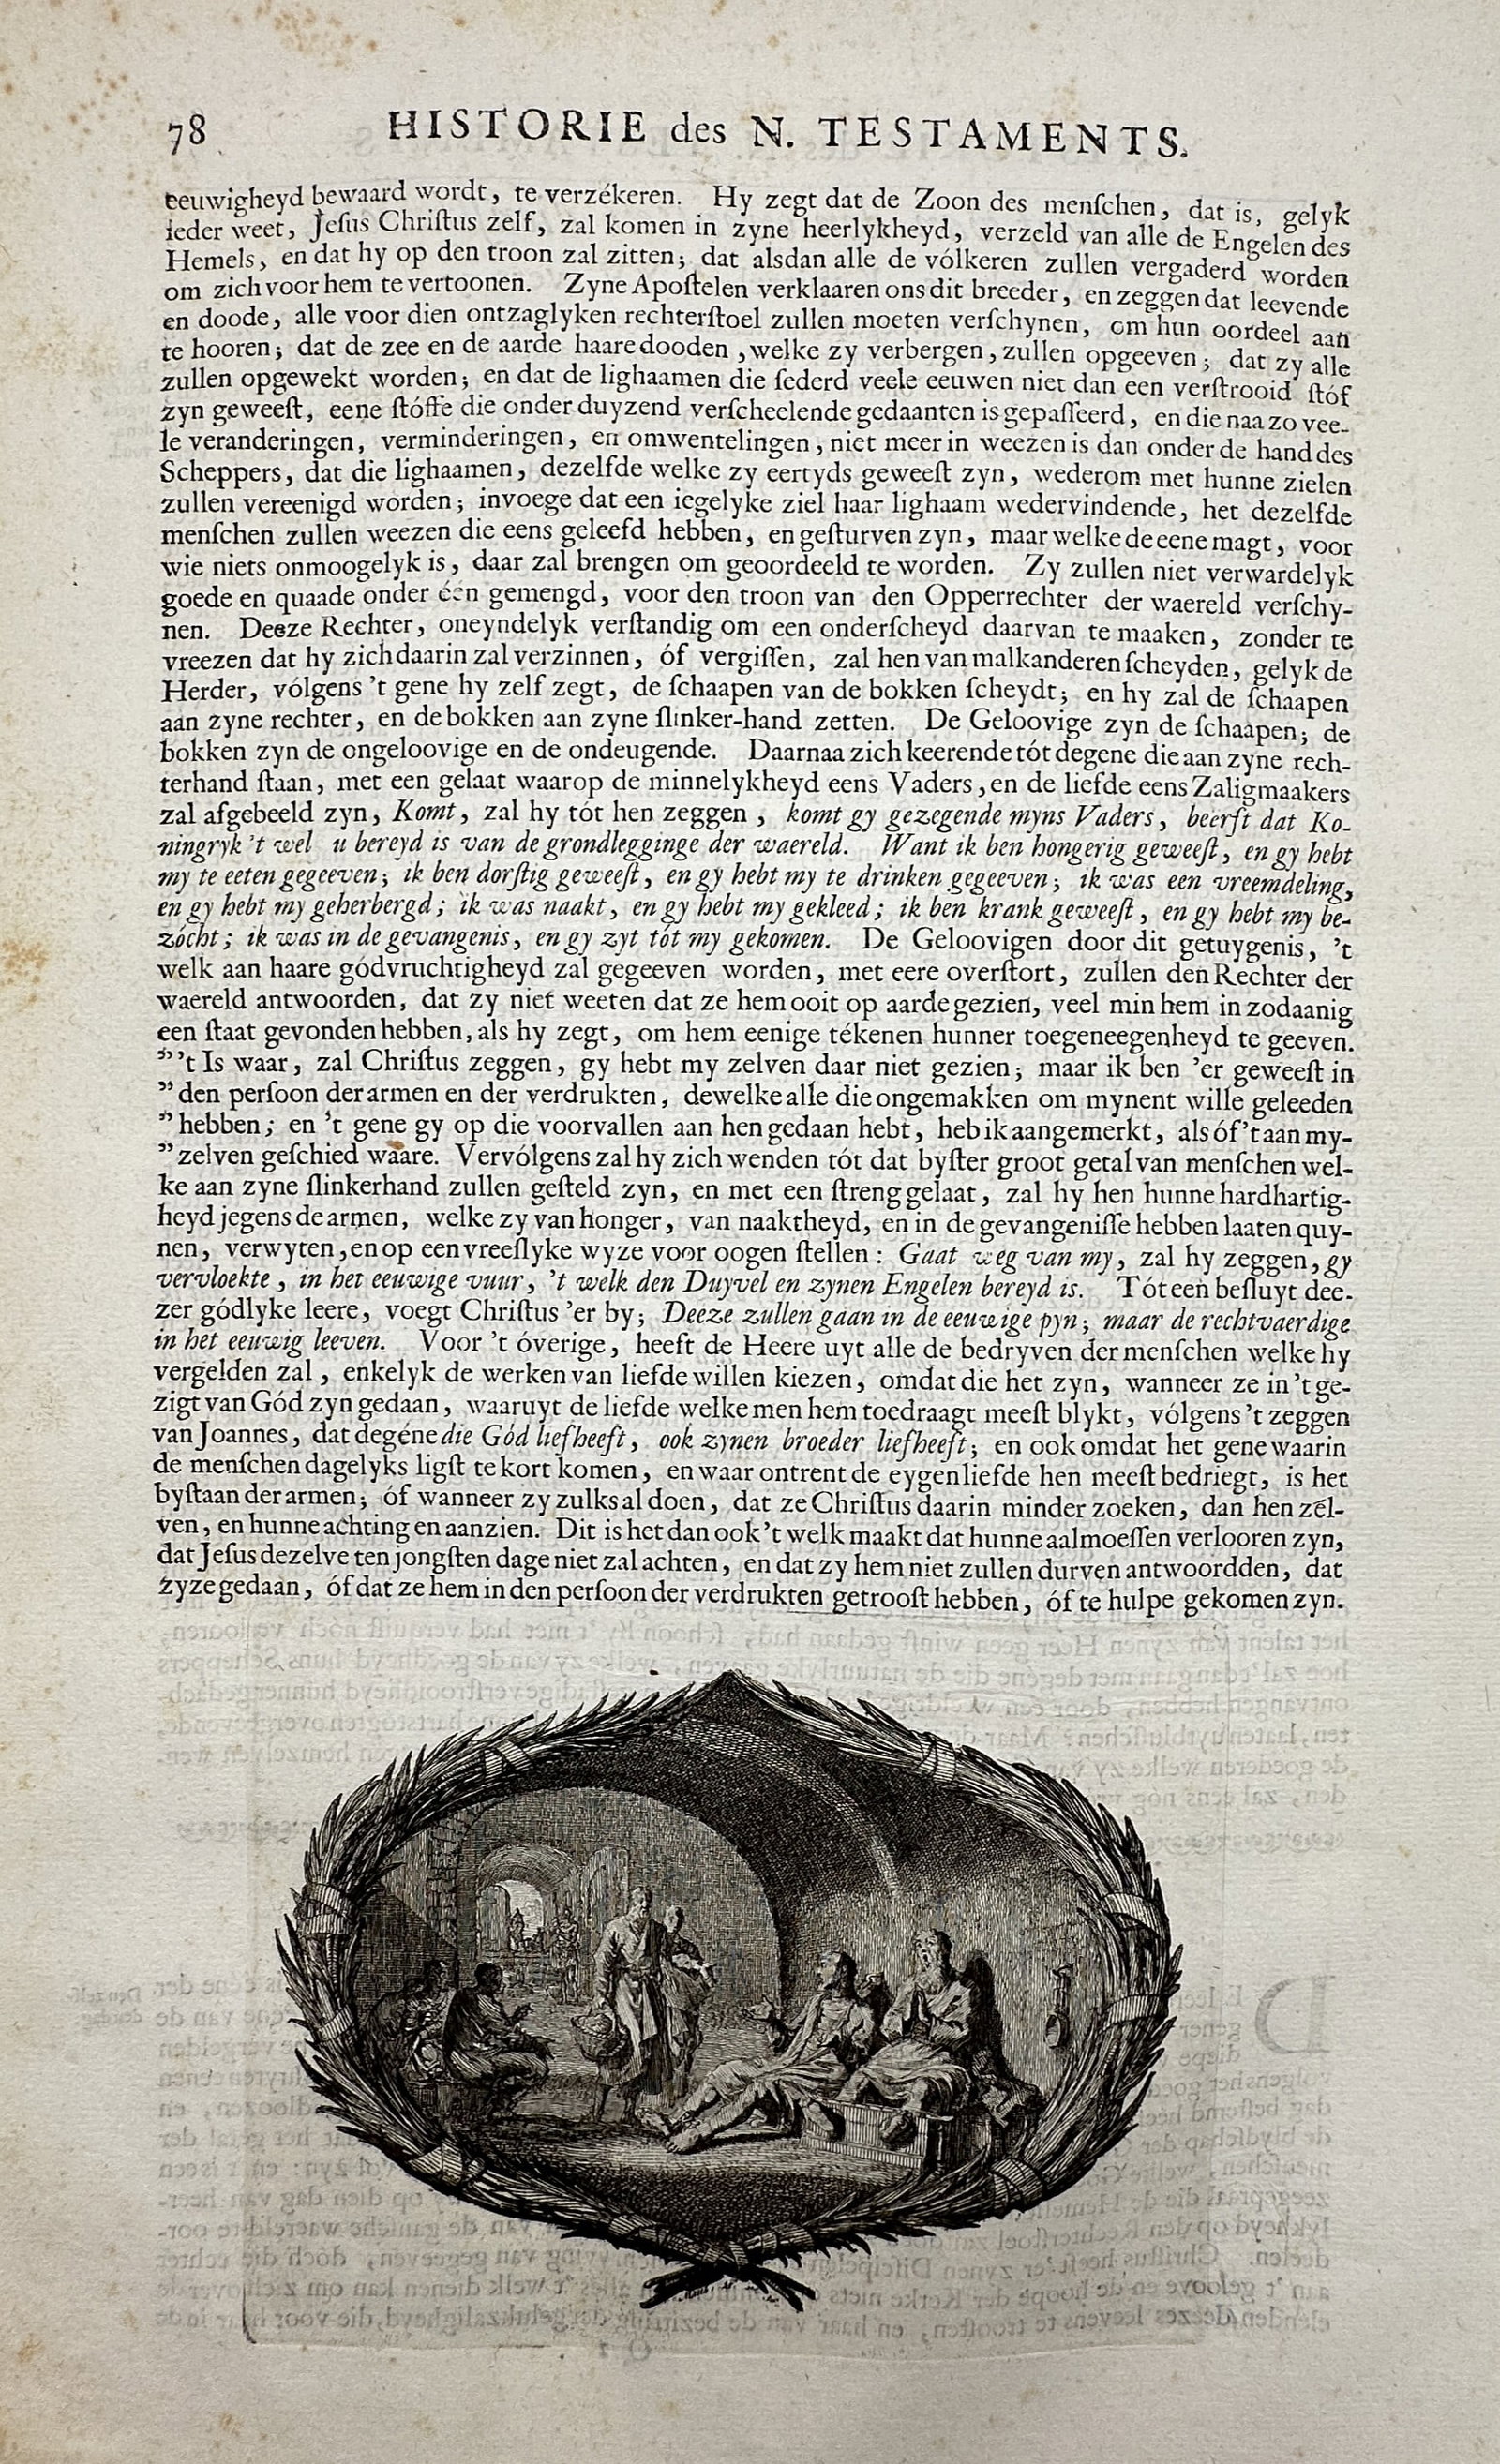 78 HISTORIE des N. TESTAMENTS.
eeuwigheyd bewaard wordt, te verzékeren. Hy zegt dat de Zoon des menſchen, dat is, gelyk
ieder weet, Jeſus Chriſtus zelf, zal komen in zyne heerlykheyd, verzeld van alle de Engelen des
Hemels, en dat hy op den troon zal zitten; dat alsdan alle de vólkeren zullen vergaderd worden
om zich voor hem te vertoonen. Zyne Apoſtelen verklaaren ons dit breeder, en zeggen dat leevende
en doode, alle voor dien ontzaglyken rechterſtoel zullen moeten verſchynen, om hun oordeel aan
te hooren; dat de zee en de aarde haare dooden, welke zy verbergen, zullen opgeeven; dat zy alle
zullen opgewekt worden; en dat de lighaamen die ſederd veele eeuwen niet dan een verſtrooid ſtóf
zyn geweeſt, eene ſtóffe die onder duyzend verſcheelende gedaanten is gepaſſeerd, en die naa zo vee-
le veranderingen, verminderingen, en omwentelingen, niet meer in weezen is dan onder de hand des
Scheppers, dat die lighaamen, dezelfde welke zy eertyds geweeſt zyn, wederom met hunne zielen
zullen vereenigd worden; invoege dat een iegelyke ziel haar lighaam wedervindende, het dezelfde
menſchen zullen weezen die eens geleefd hebben, en geſturven zyn, maar welke de eene magt, voor
wie niets onmoogelyk is, daar zal brengen om geoordeeld te worden. Zy zullen niet verwardelyk
goede en quaade onder één gemengd, voor den troon van den Opperrechter der waereld verſchy-
nen. Deeze Rechter, oneyndelyk verſtandig om een onderſcheyd daarvan te maaken, zonder te
vreezen dat hy zich daarin zal verzinnen, óf vergiſſen, zal hen van malkanderen ſcheyden, gelyk de
Herder, vólgens 't gene hy zelf zegt, de ſchaapen van de bokken ſcheydt; en hy zal de ſchaapen
aan zyne rechter, en de bokken aan zyne ſlinker-hand zetten. De Geloovige zyn de ſchaapen; de
bokken zyn de ongeloovige en de ondeugende. Daarnaa zich keerende tót degene die aan zyne rech-
terhand ſtaan, met een gelaat waarop de minnelykheyd eens Vaders, en de liefde eens Zaligmaakers
zal afgebeeld zyn, Komt, zal hy tót hen zeggen, komt gy gezegende myns Vaders, beërft dat Ko-
ningryk 't wel u bereyd is van de grondlegginge der waereld. Want ik ben hongerig geweeſt, en gy hebt
my te eeten gegeeven; ik ben dorſtig geweeſt, en gy hebt my te drinken gegeeven; ik was een vreemdeling,
en gy hebt my geherbergd; ik was naakt, en gy hebt my gekleed; ik ben krank geweeſt, en gy hebt my be-
zócht; ik was in de gevangenis, en gy zyt tót my gekomen. De Geloovigen door dit getuygenis, 't
welk aan haare gódvruchtigheyd zal gegeeven worden, met eere overſtort, zullen den Rechter der
waereld antwoorden, dat zy niet weeten dat ze hem ooit op aarde gezien, veel min hem in zodaanig
een ſtaat gevonden hebben, als hy zegt, om hem eenige tékenen hunner toegeneegenheyd te geeven.
” 't Is waar, zal Chriſtus zeggen, gy hebt my zelven daar niet gezien; maar ik ben 'er geweeſt in
” den perſoon der armen en der verdrukten, dewelke alle die ongemakken om mynent wille geleeden
” hebben; en 't gene gy op die voorvallen aan hen gedaan hebt, heb ik aangemerkt, als óf 't aan my-
” zelven geſchied waare. Vervólgens zal hy zich wenden tót dat byſter groot getal van menſchen wel-
ke aan zyne ſlinkerhand zullen geſteld zyn, en met een ſtreng gelaat, zal hy hen hunne hardhartig-
heyd jegens de armen, welke zy van honger, van naaktheyd, en in de gevangeniſſe hebben laaten quy-
nen, verwyten, en op een vreeſlyke wyze voor oogen ſtellen: Gaat weg van my, zal hy zeggen, gy
vervloekte, in het eeuwige vuur, 't welk den Duyvel en zynen Engelen bereyd is. Tót een beſluyt dee-
zer gódlyke leere, voegt Chriſtus 'er by; Deeze zullen gaan in de eeuwige pyn; maar de rechtvaerdige
in het eeuwig leeven. Voor 't óverige, heeft de Heere uyt alle de bedryven der menſchen welke hy
vergelden zal, enkelyk de werken van liefde willen kiezen, omdat die het zyn, wanneer ze in 't ge-
zigt van Gód zyn gedaan, waaruyt de liefde welke men hem toedraagt meeſt blykt, vólgens 't zeggen
van Joannes, dat degéne die Gód liefheeft, ook zynen broeder liefheeft; en ook omdat het gene waarin
de menſchen dagelyks ligſt te kort komen, en waar ontrent de eygenliefde hen meeſt bedriegt, is het
byſtaan der armen; óf wanneer zy zulks al doen, dat ze Chriſtus daarin minder zoeken, dan hen zél-
ven, en hunne achting en aanzien. Dit is het dan ook 't welk maakt dat hunne aalmoeſſen verlooren zyn,
dat Jeſus dezelve ten jongſten dage niet zal achten, en dat zy hem niet zullen durven antwoordden, dat
zy ze gedaan, óf dat ze hem in den perſoon der verdrukten getrooſt hebben, óf te hulpe gekomen zyn.